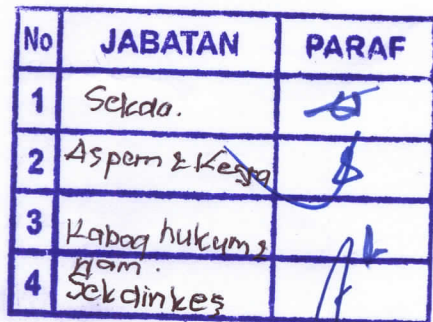 No JABATAN PARAF
1 Sekda.
2 Aspem & Kesra
3 Kabag hukum &
ham.
4 Sekdinkes